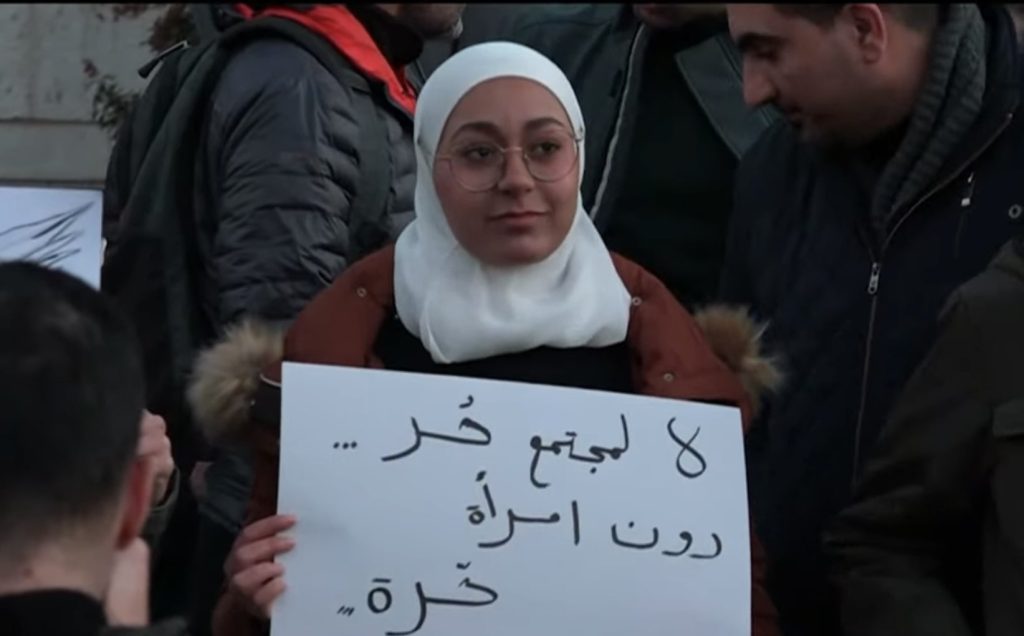 لا لمجتمع حُر ...
دون امرأة
حُرة ...